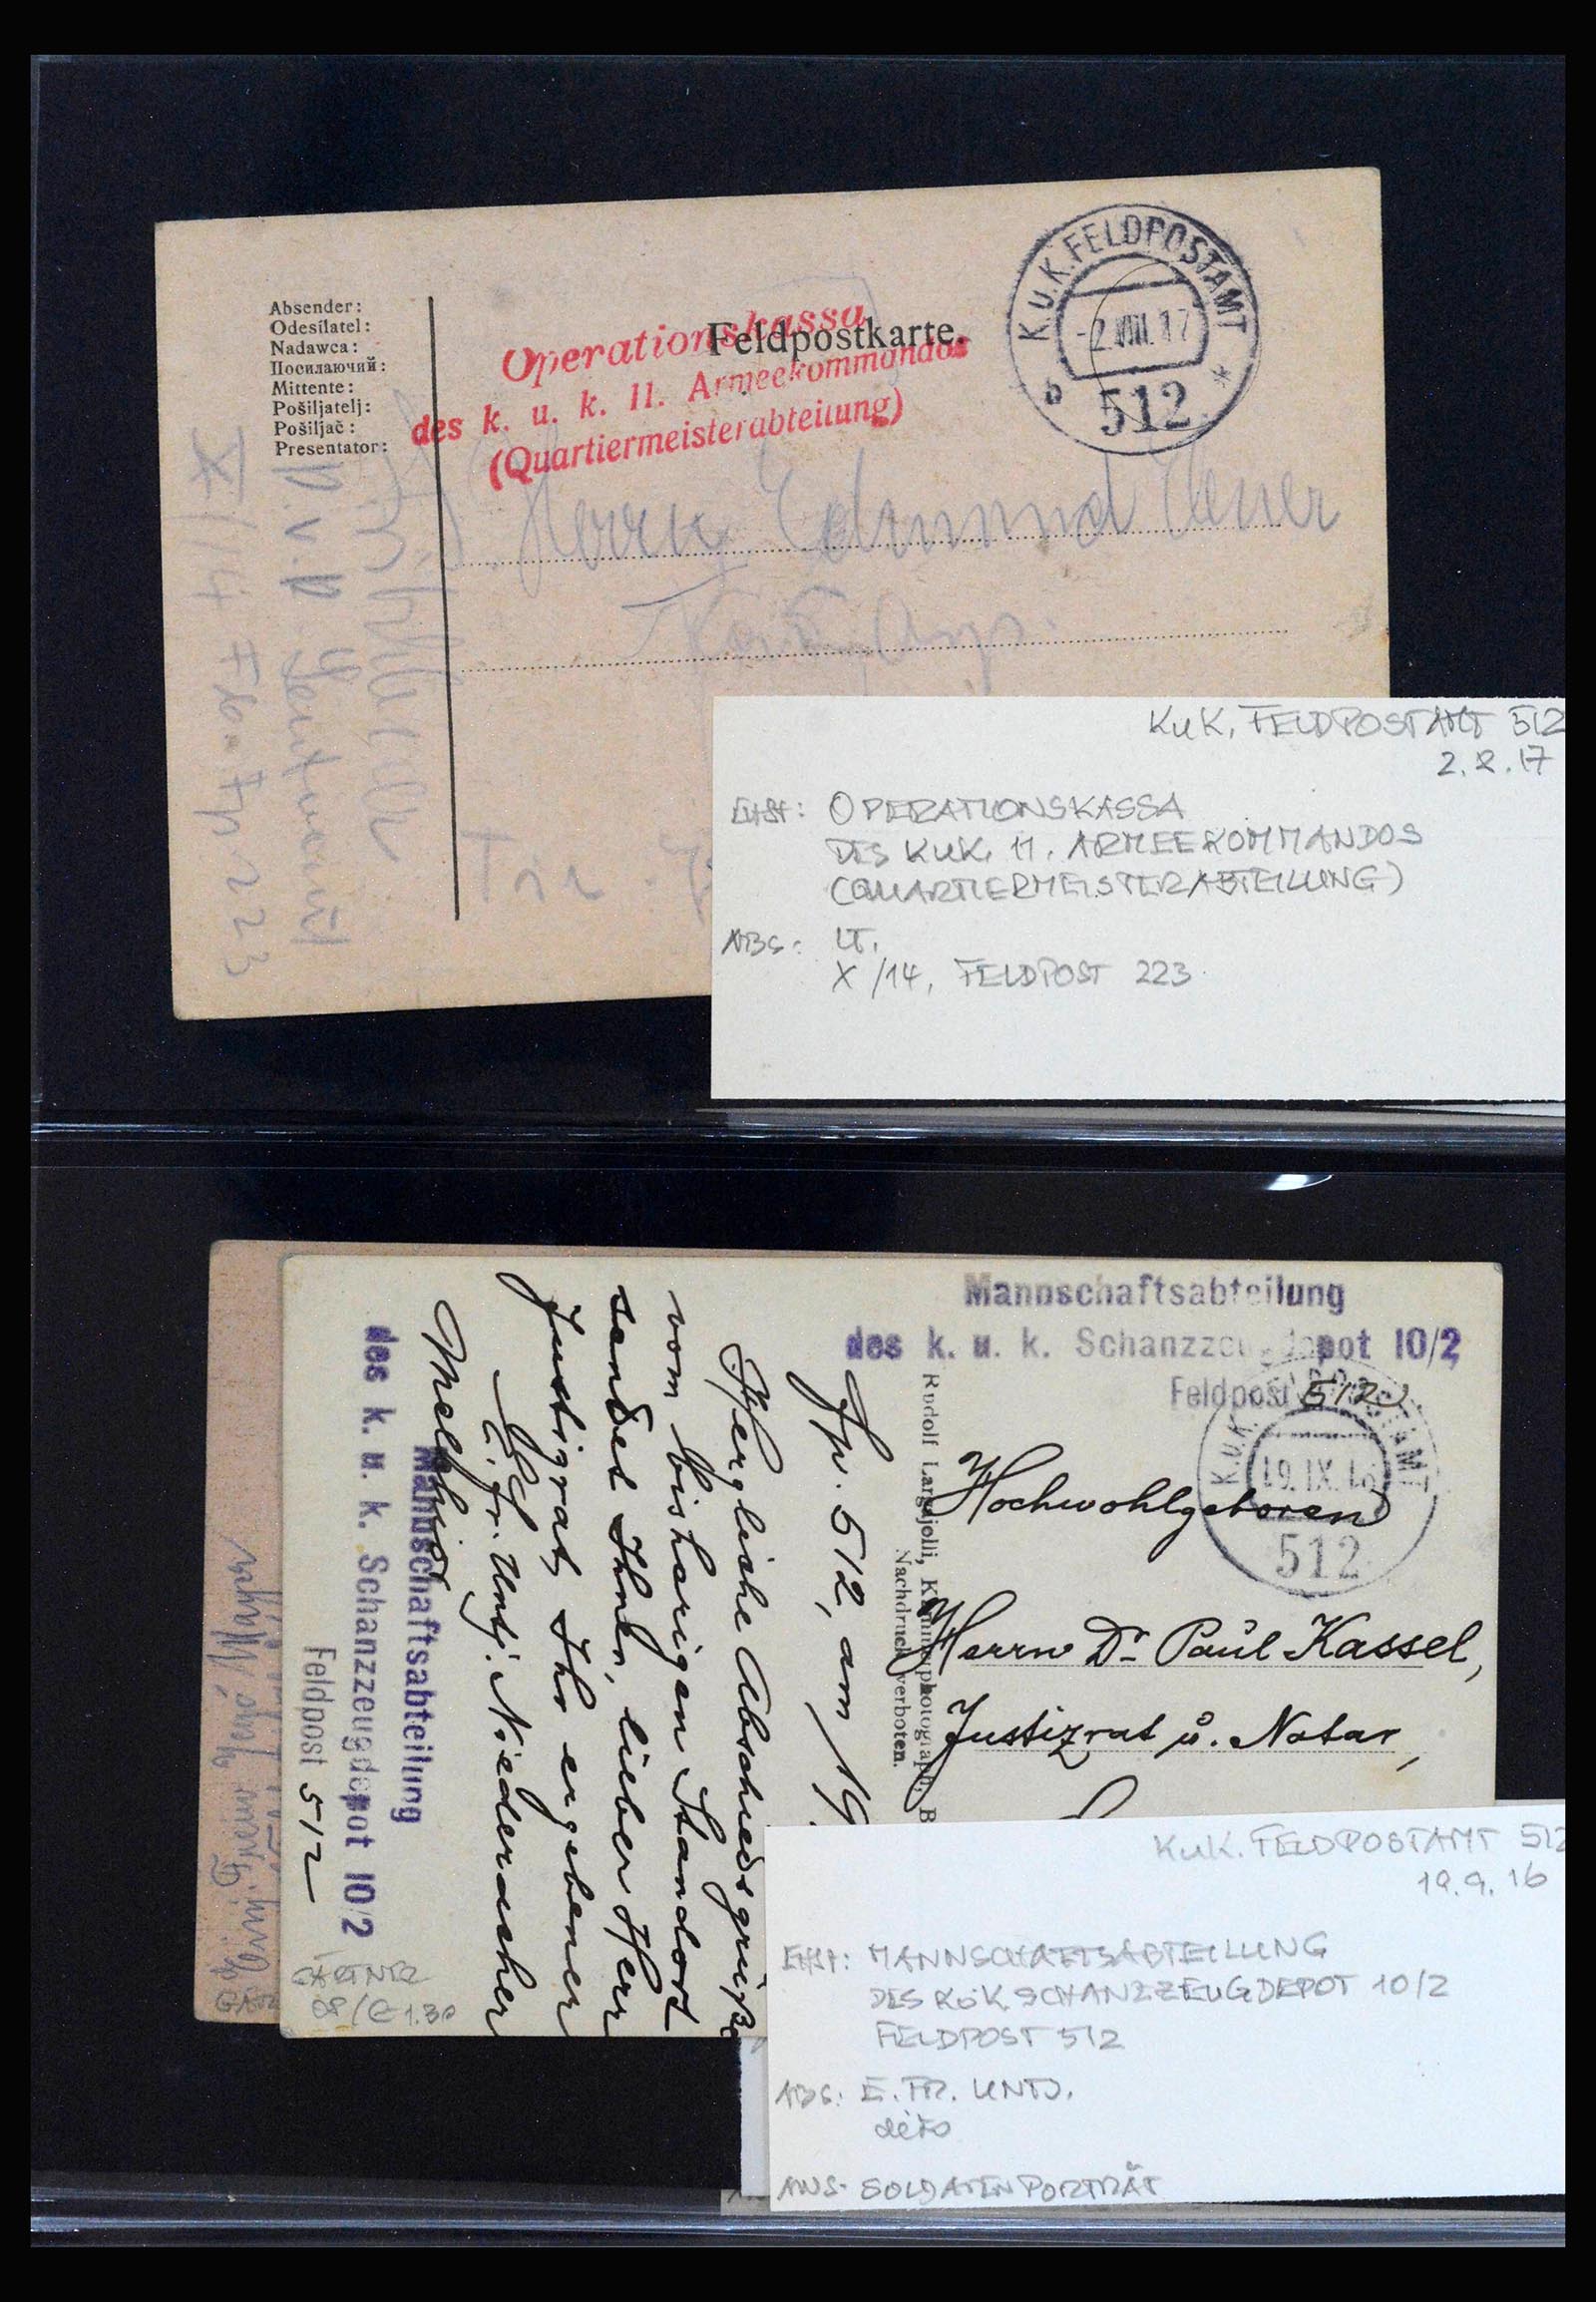 Absender:
Odesílatel:
Nadawca:
Посилаючий:
Mittente:
Pošiljatelj:
Pošiljač:
Presentator:
Feldpostkarte.
Operationskassa
des k. u. k. 11. Armeekommandos
(Quartiermeisterabteilung)
K.U.K. FELDPOSTAMT
-2.VIII.17
b 512 *
Herrn Edmund
Leutnant
X/14
223
KuK. FELDPOSTAMT 512
2.8.17
OPERATIONSKASSA
DES KUK. 11. ARMEEKOMMANDOS
(QUARTIERMEISTERABTEILUNG)
ABS: LT.
X/14, FELDPOST 223
Mannschaftsabteilung
des k. u. k. Schanzzeugdepot 10/2
Feldpost 512
K.u.K. FELDPOSTAMT
19.IX.16
512
Hochwohlgeboren
Herrn Dr. Paul Kassel,
Justizrat u. Notar,
Nachdruck verboten.
Fp. 512, am 19.
Herzliche Abschiedsgrüße
vom bisherigen Standort
sendet Ihnen, lieber Herr
Justizrat, Ihr ergebener
E. fr. Untj. Niederacher
Melchior
Mannschaftsabteilung
des k. u. k. Schanzzeugdepot 10/2
Feldpost 512
GÄRTNER
08/€ 1.30
KuK. FELDPOSTAMT 512
19.9.16
MANNSCHAFTSABTEILUNG
DES KUK SCHANZZEUGDEPOT 10/2
FELDPOST 512
ABS: E. FR. UNTJ.
deto
ANS- SOLDATENPORTRÄT